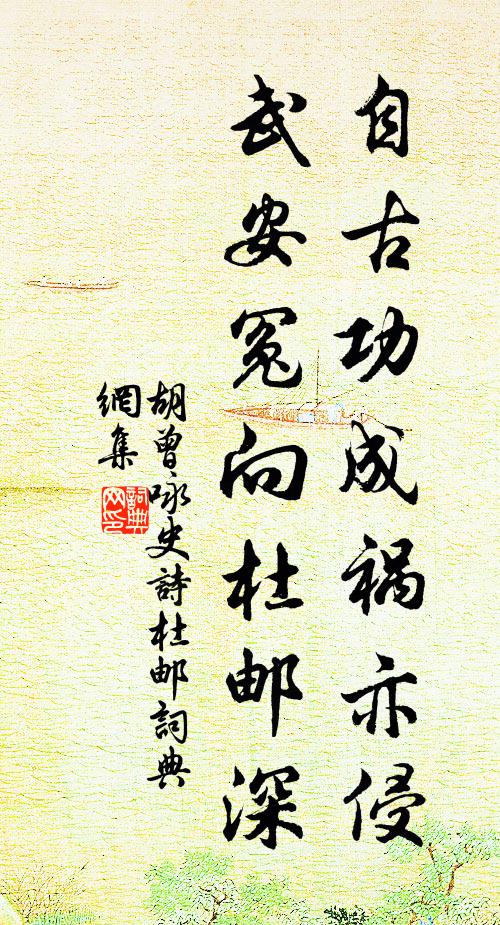 自古功成祸亦侵
武安冤向杜邮深
胡曾咏史詩杜邮詞典
網集
詞典网印